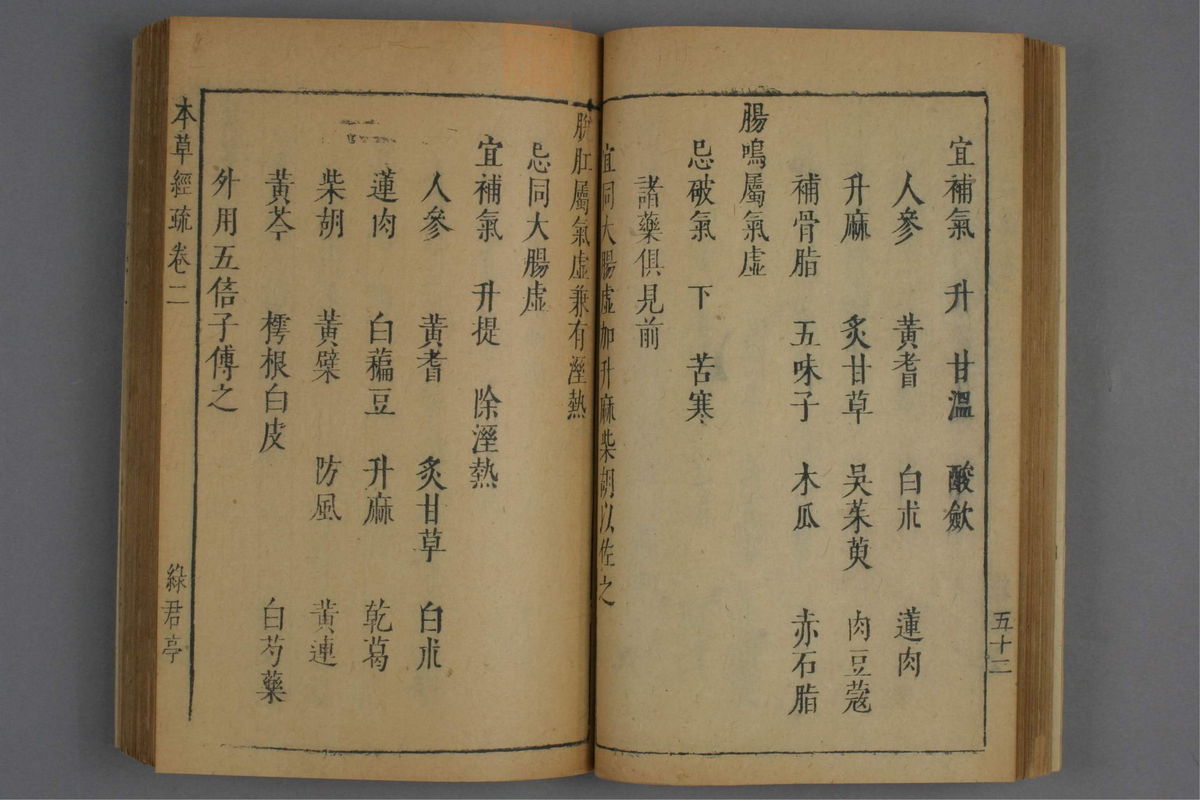 宜補氣　升　甘溫　酸歛
人參　黃耆　白朮　蓮肉
升麻　炙甘草　吳茱萸　肉豆蔻
補骨脂　五味子　木瓜　赤石脂
腸鳴屬氣虛
忌破氣　下　苦寒
諸藥俱見前
宜同大腸虛加升麻柴胡以佐之
五十二
脫肛屬氣虛兼有溼熱
忌同大腸虛
宜補氣　升提　除溼熱
人參　黃耆　炙甘草　白朮
蓮肉　白藊豆　升麻　乾葛
柴胡　黃檗　防風　黃連
黃芩　樗根白皮　白芍藥
外用五倍子傅之
本草經疏卷二　綠君亭